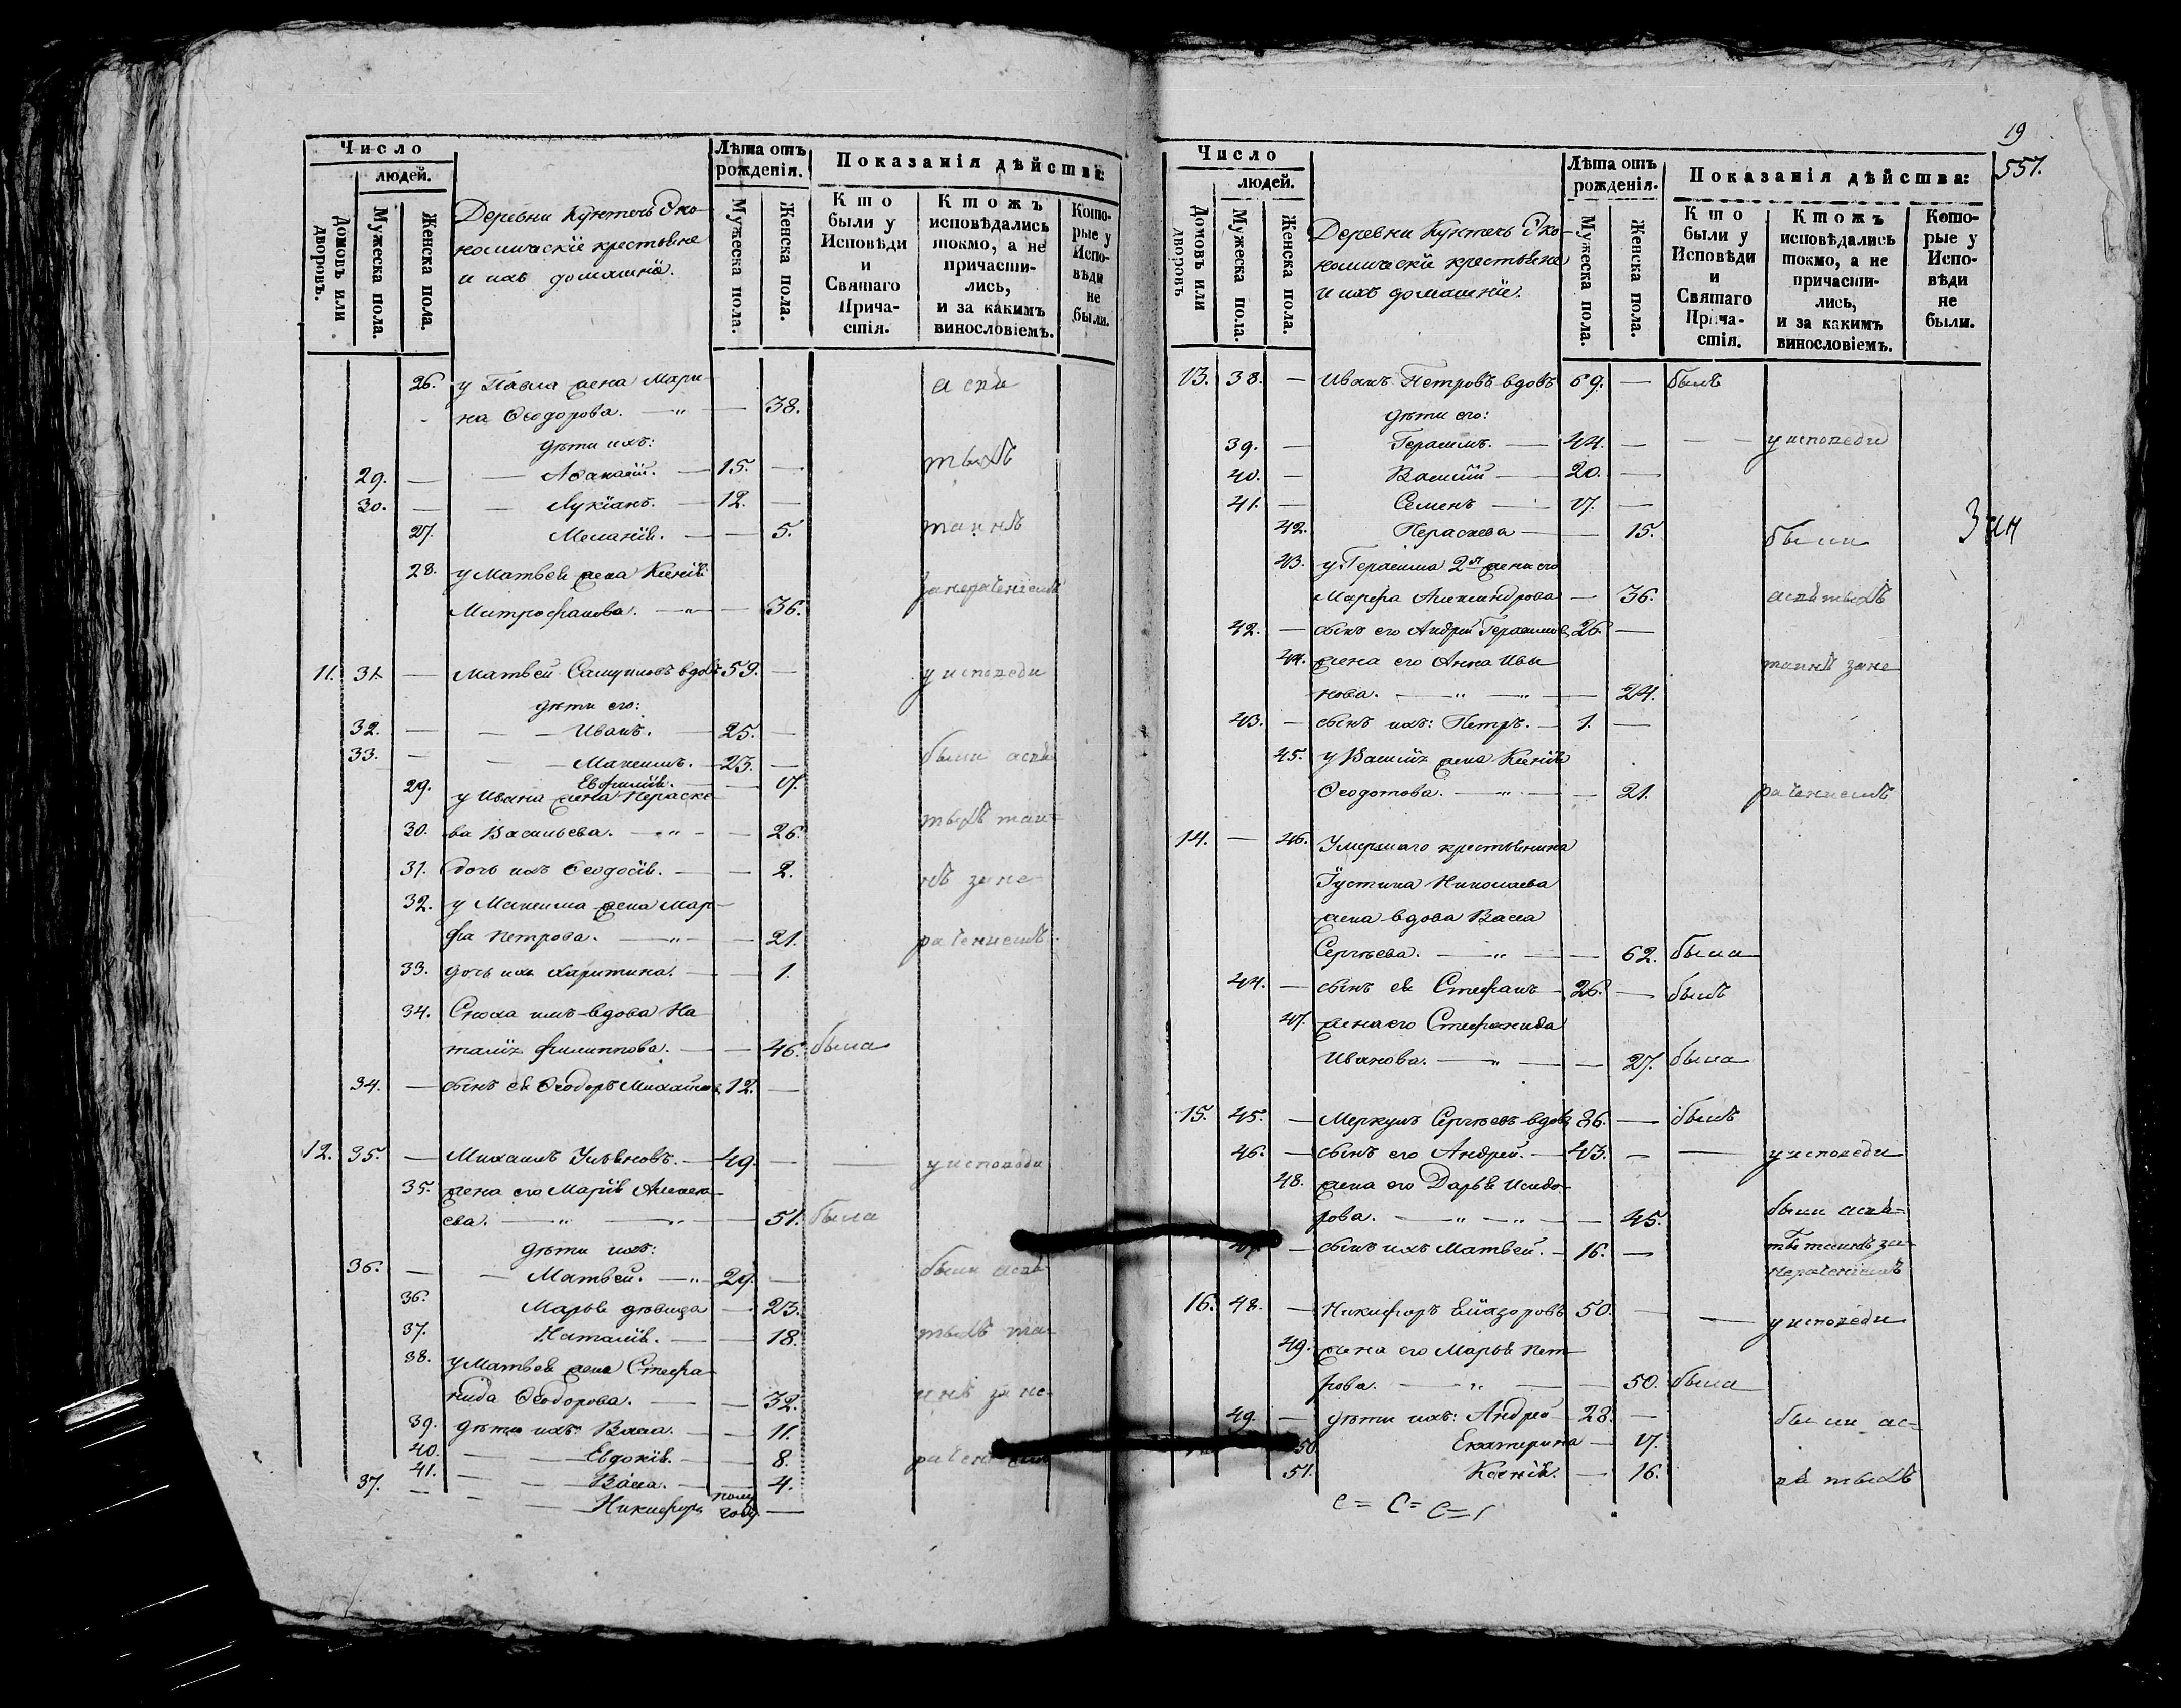 Число
людей.
Домовъ или дворовъ.
Мужеска пола.
Женска пола.
Деревни Куктечъ Эко-
номическіе крестьяне
и ихъ домашніе.
Лѣта отъ рожденія.
Мужеска пола.
Женска пола.
Показанія дѣйства:
Кто были у Исповѣди и Святаго Причастія.
Ктожъ исповѣдались токмо, а не причастились, и за какимъ винословіемъ.
Которые у Исповѣди не были.
26. у Павла жена Мари-
на Ѳеодорова. — „ — 38.
дѣти ихъ:
29. — Аѳанасій. — 15. —
30. — Лукіанъ. — 12. —
27. Меланія. — — 5.
28. у Матвея жена Ксенія
Митрофанова. — „ — 36.
11. 31. — Матвей Самуиловъ вдовъ 59. — у исповеди
дѣти его:
32. — Иванъ. — 25. —
33. — Максимъ. — 23. — были аспи
29. Евфимія. — 17.
у Ивана жена Параске-
30. ва Васильева. — „ — 26.
31. дочь ихъ Ѳеодосія. — — 2.
32. у Максима жена Мар-
фа Петрова. — „ — 21.
33. дочь ихъ Харитина. — — 1.
34. Сноха имъ вдова На
талія Филиппова. — — 46. была
34. — сынъ ея Ѳеодоръ Михайловъ 12. —
12. 35. — Михаилъ Ульяновъ. — 49. — у исповеди
35. жена его Марія Алексе-
ева. — „ — „ — 51. была
дѣти ихъ:
36. — Матвей. — „ 29. —
36. Марья дѣвица — 23.
37. Наталія. — — 18.
38. у Матвея жена Стефа-
нида Ѳеодорова. — — 32.
39. дѣти ихъ: Васса. — — 11.
40. — Евдокія. — — 8.
41. — Васса. — — 4.
37. — Никифоръ полу году —
19
557.
Число
людей.
Домовъ или дворовъ
Мужеска пола.
Женска пола.
Деревни Куктечъ Эко-
номическіе крестьяне
и ихъ домашніе.
Лѣта отъ рожденія.
Мужеска пола.
Женска пола.
Показанія дѣйства:
Кто были у Исповѣди и Святаго Причастія.
Ктожъ исповѣдались токмо, а не причастились, и за какимъ винословіемъ.
Которые у Исповѣди не были.
13. 38. — Иванъ Петровъ вдовъ 69. — былъ
дѣти его:
39. — Герасимъ. — 44. — — у исповеди
40. — Василій — 20. —
41. — Семенъ — 17. —
42. Параскева — — 15. были
43. у Герасима 2я жена его
Марфа Александрова — 36.
42. — сынъ его Андрей Герасимовъ 26. —
44. жена его Анна Ива
нова. — „ — „ — 24.
43. — сынъ ихъ: Петръ. — 1. —
45. у Василія жена Ксенія
Ѳеодотова. — „ — — 21.
14. — 46. Умершаго крестьянина
Іустина Николаева
жена вдова Васса
Сергѣева. — „ — — 62. была
44. — сынъ ея Стефанъ — 26. — былъ
47. жена его Стефанида
Иванова. — „ — — 27. была
15. 45. — Меркулъ Сергѣевъ вдовъ 86. — былъ
46. — сынъ его Андрей. — 43. — — у исповеди
48. жена его Дарья Исидо-
рова. — „ — „ — 45.
47. — сынъ ихъ Матвей. — 16. —
16. 48. — Никифоръ Елиазоровъ 50. — — у исповеди
49. жена его Марья Пет-
рова. — „ — — 50. была
49. — дѣти ихъ: Андрей 28. —
50 Екатерина — 17.
51. Ксенія. — 16.